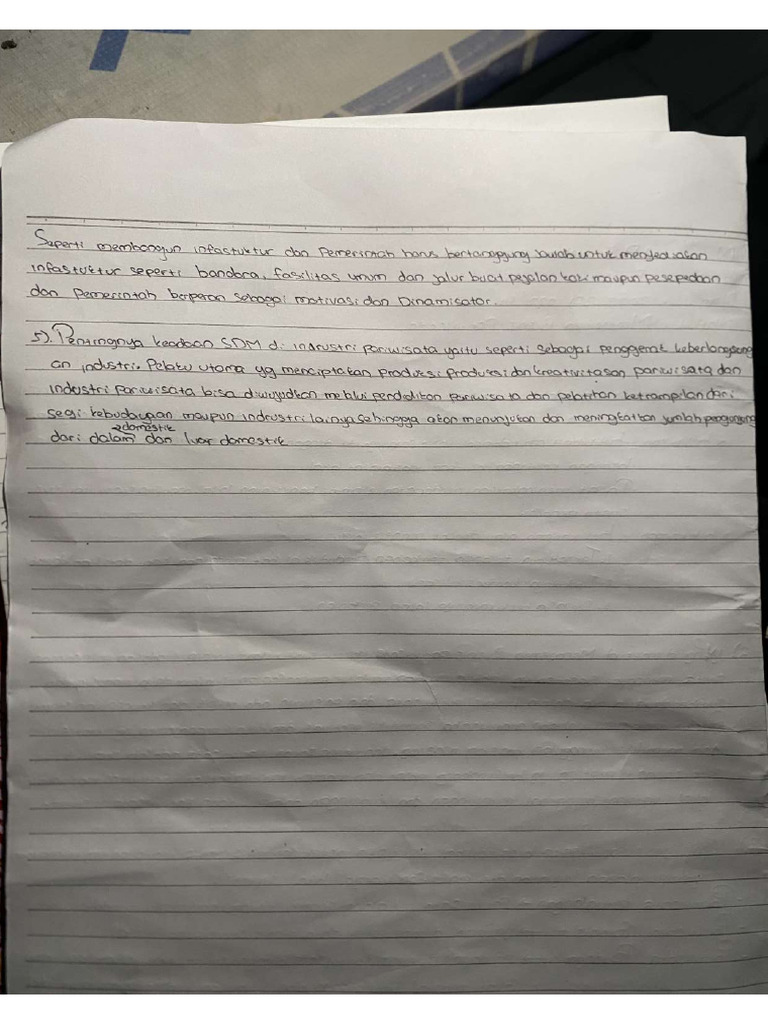 Seperti membangun infastuktur dan Pemerintah harus bertanggung jawab untuk menyediakan
infastuktur seperti bandara, fasilitas umum dan jalur buat pejalan kaki maupun pesepedaan
dan Pemerintah berperan sebagai motivasi dan Dinamisator.
5). Pentingnya keadaan SDM di indrustri pariwisata yaitu seperti sebagai penggerak keberlangsung
an industri. Pelaku utama yg menciptakan produksi produksi dan kreativitasan pariwisata dan
industri pariwisata bisa diwujudkan melalui pendidikan pariwisata dan pelatihan ketrampilan dari
segi kebudayaan maupun indrustri lainya sehingga akan menunjukan dan meningkatkan jumlah pengunjung
dari dalam domestik dan luar domestik